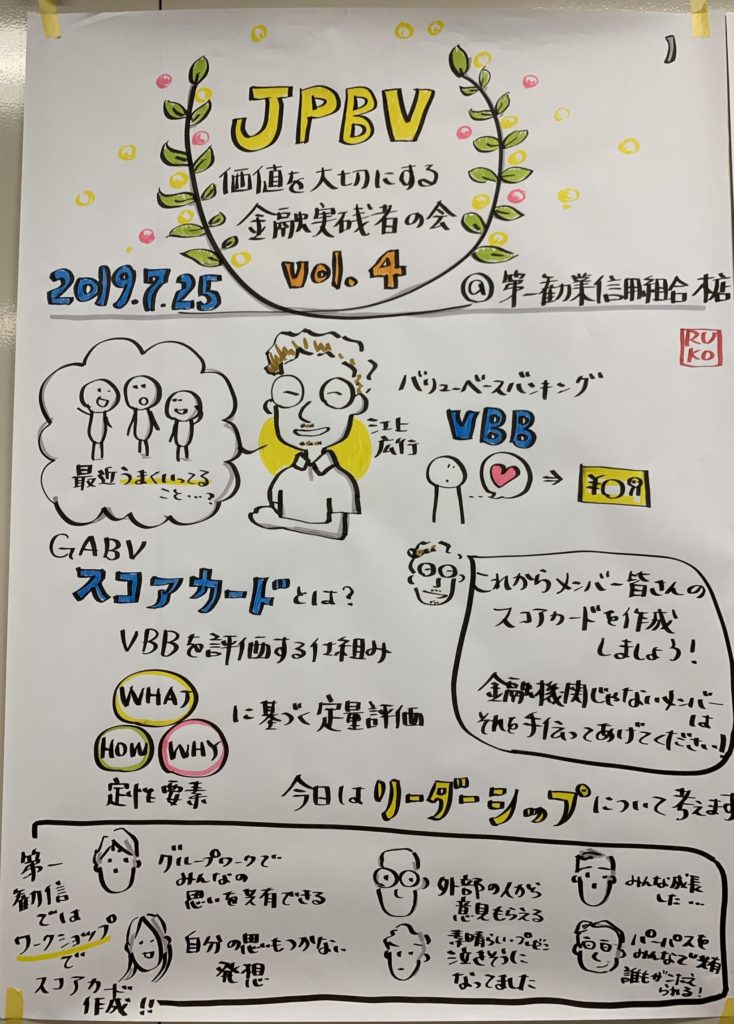 1
JPBV
価値を大切にする
金融実践者の会
vol.4
2019.7.25
@第一勧業信用組合本店
RU
KO
最近うまくいってる
こと…?
江上
広行
バリューベースバンキング
VBB
⇒
GABV
スコアカードとは?
VBBを評価する仕組み
WHAT
HOW WHY
に基づく定量評価
定性要素
これからメンバー皆さんの
スコアカードを作成
しましょう!
金融機関じゃないメンバーは
それを手伝ってあげてください!
今日はリーダーシップについて考えます
第一
勧信
では
ワークショップ
で
スコアカード
作成!!
グループワークで
みんなの
思いを共有できる
自分の思いもつかない
発想
外部の人から
意見もらえる
素晴らしいプレゼに
泣きそうに
なってました
みんな成長
した…
パーパスを
みんなで共有
誰もがこたえ
られる!